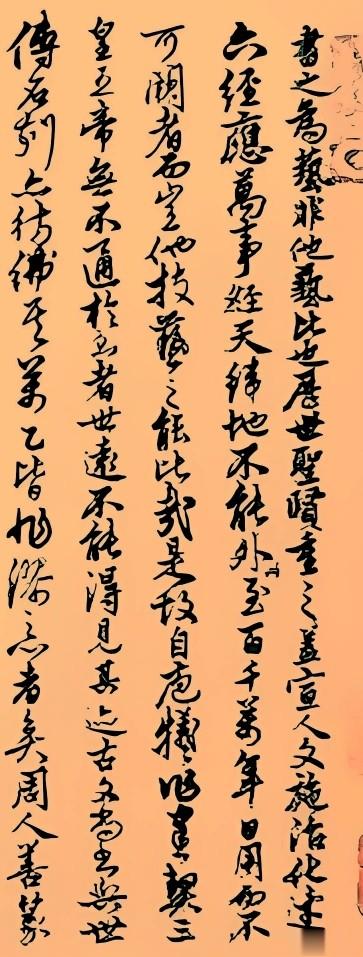 書之為藝非他藝比也歷世聖賢重之蓋宣人文施治化達
六經應萬事經天緯地不能外至百千萬年日用而不
可闕者而豈他技藝之能比哉是故自庖犧作書契三
皇五帝無不通於書者世遠不能得見其迹古文尚書與世
傳石刻亦彷彿其萬乙皆非者矣周人善篆